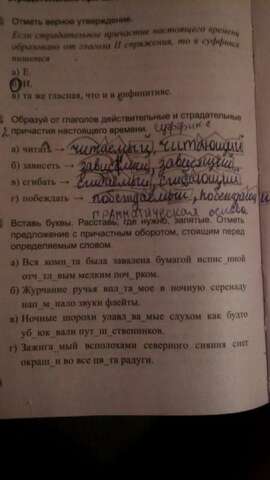 Отметь верное утверждение.
Если страдательное причастие настоящего времени
образовано от глагола II спряжения, то в суффиксе
пишется
а) Е.
б) И.
в) та же гласная, что и в инфинитиве.
суффикс
Образуй от глаголов действительные и страдательные
причастия настоящего времени.
а) читать → читаемый, читающий
б) зависеть → зависимый, зависящий
в) сгибать → сгибаемый, сгибающий
г) побеждать → побеждаемый,
грамматическая основа
Вставь буквы. Расставь, где нужно, запятые. Отметь
предложение с причастным оборотом, стоящим перед
определяемым словом.
а) Вся комн_та была завалена бумагой испис_нной
отч_тл_вым мелким поч_рком.
б) Журчание ручья впл_та_мое в ночную серенаду
нап_м_нало звуки флейты.
в) Ночные шорохи улавл_ва_мые слухом как будто
уб_юк_вали пут_ш_ственников.
г) Зажига_мый всполохами северного сияния снег
окраш_н во все цв_та радуги.